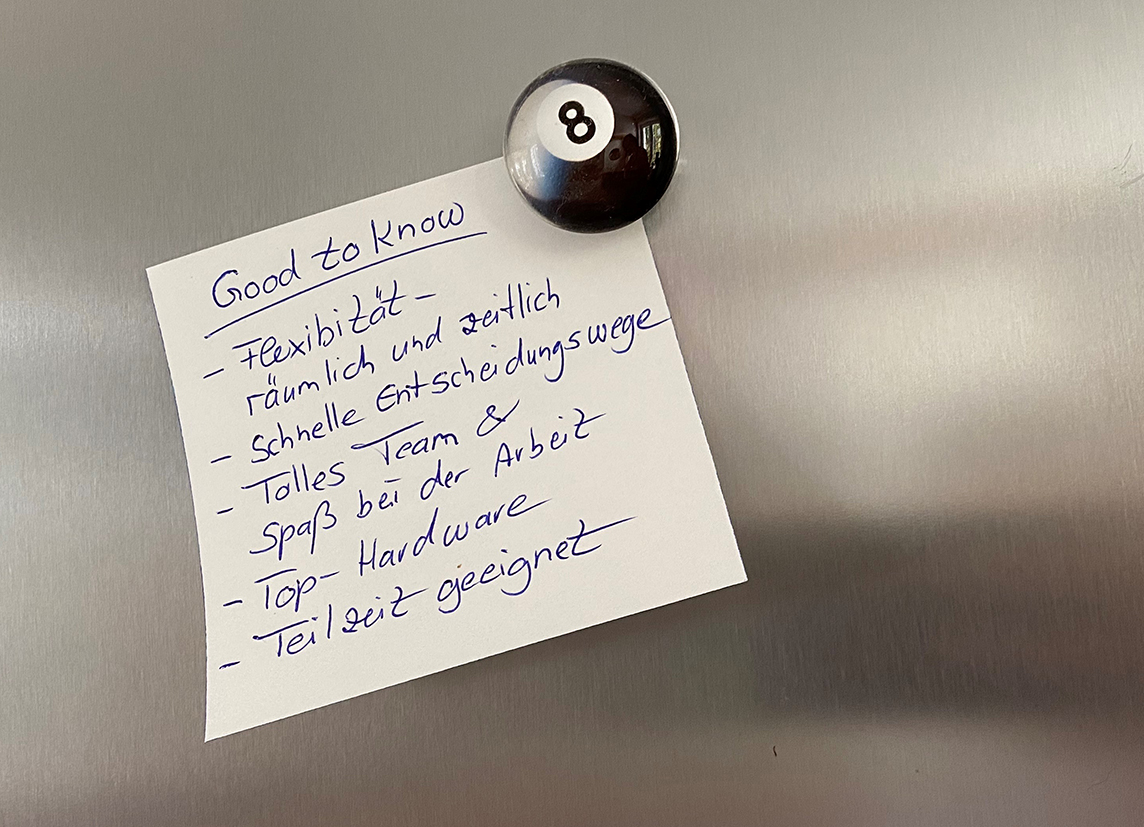 8
Good to know
- Flexibität -
räumlich und zeitlich
- Schnelle Entscheidungswege
- Tolles Team &
Spaß bei der Arbeit
- Top- Hardware
- Teilzeit geeignet